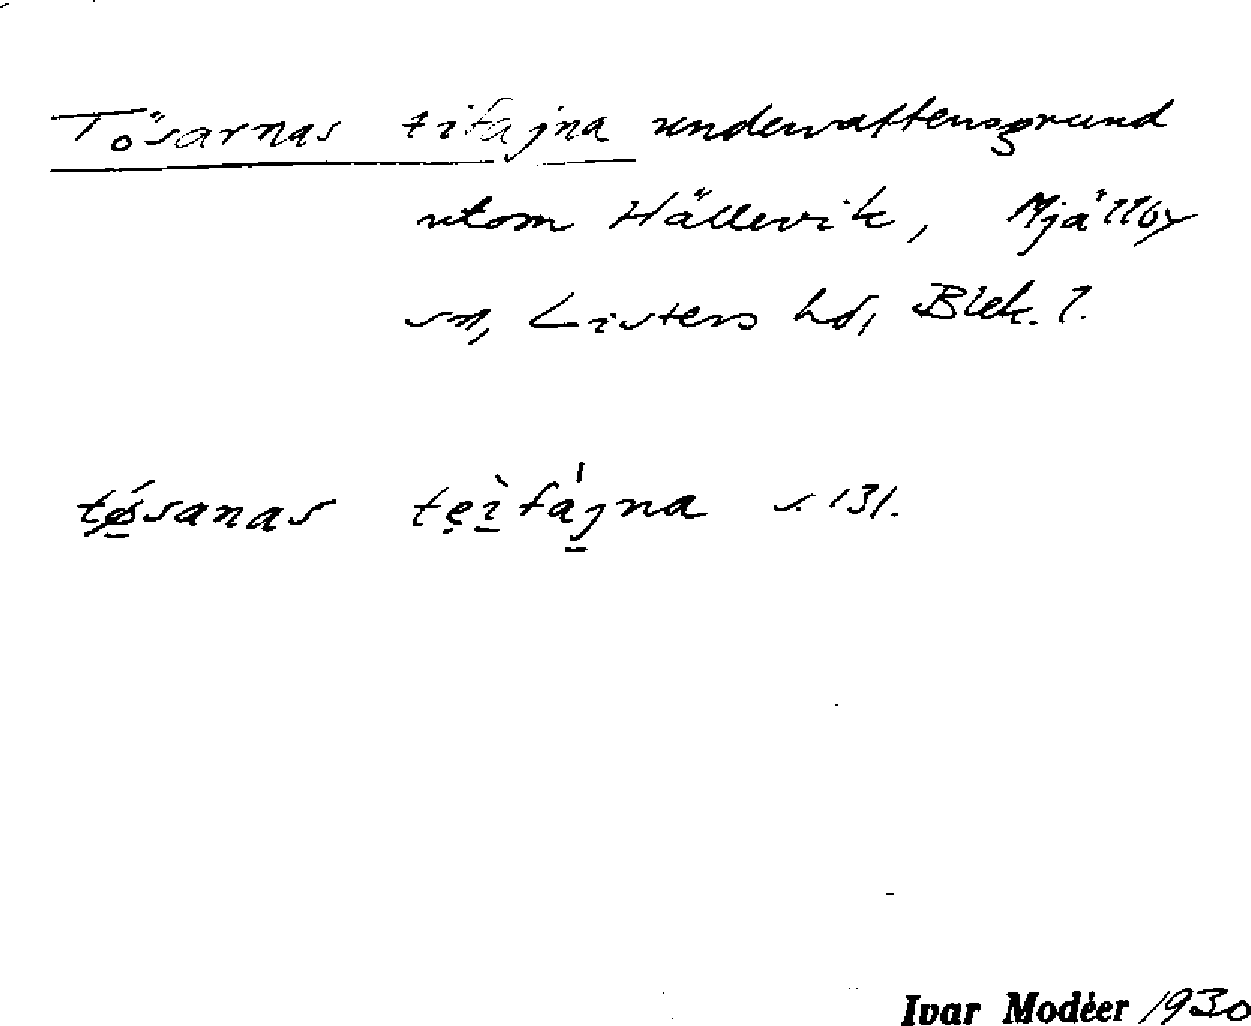 Tösarnas tifajna undervattensgrund
utom Hällevik, Mjällby
sn, Listers hd, Blek. l.
tǿsanas tẹì fájna s. 131.
Ivar Modéer 1930